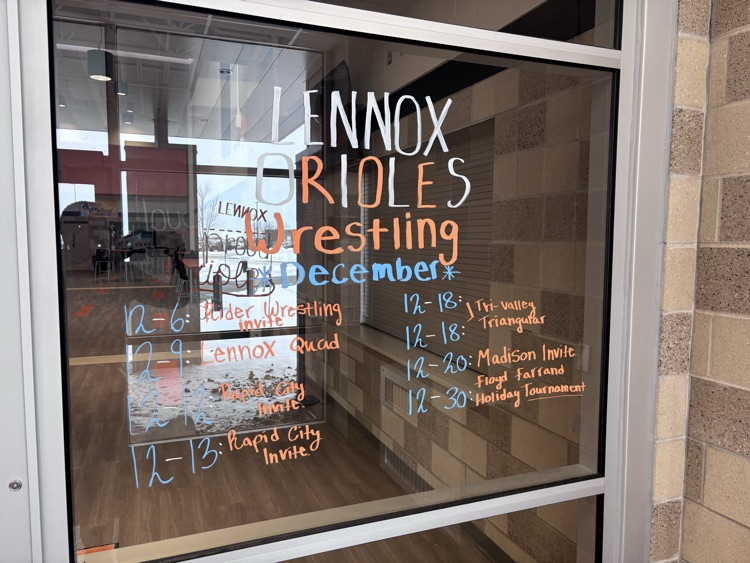 LENNOX
ORIOLES
Wrestling
*December*
12-6: Rider Wrestling
invite
12-9: Lennox Quad
12-12 Rapid City
Invite
12-13: Rapid City
Invite
12-18: Tri-Valley
12-18: Triangular
12-20: Madison Invite
Floyd Farrand
12-30: Holiday Tournament
LENNOX